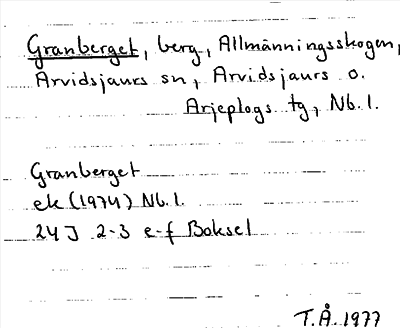 Granberget, berg, Allmänningsskogen,
Arvidsjaurs sn, Arvidsjaurs o.
Arjeplogs tg, Nb. l.
Granberget
ek (1974) Nb. l.
24J 2-3 e-f Boksel
T.Å. 1977